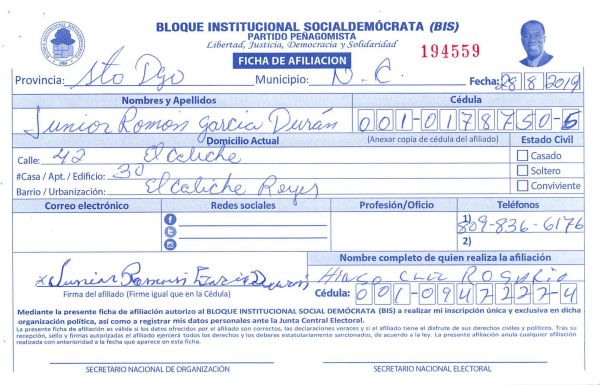 BLOQUE INSTITUCIONAL SOCIALDEMÓCRATA (BIS)
PARTIDO PEÑAGOMISTA
Libertad, Justicia, Democracia y Solidaridad
FICHA DE AFILIACION
194559
Provincia: Sto Dgo Municipio: N.C. Fecha: 28 8 2019
Nombres y Apellidos Cédula
Junior Ramon Garcia Durán 001-0178750-5
Domicilio Actual (Anexar copia de cédula del afiliado) Estado Civil
Calle: 42 El Caliche Casado
#Casa / Apt. / Edificio: 30 Soltero
Barrio / Urbanización: El Caliche Reyes Conviviente
Correo electrónico Redes sociales Profesión/Oficio Teléfonos
1) 809-836-6176
2)
Nombre completo de quien realiza la afiliación
x Junior Ramon Garcia Duran Cruz Rosario
Firma del afiliado (Firme igual que en la Cédula) Cédula: 001-0947222-4
Mediante la presente ficha de afiliación autorizo al BLOQUE INSTITUCIONAL SOCIAL DEMÓCRATA (BIS) a realizar mi inscripción única y exclusiva en dicha
organización política, así como a registrar mis datos personales ante la Junta Central Electoral.
La presente ficha de afiliación es válida si los datos ofrecidos por el afiliado son correctos, las declaraciones veraces y si el afiliado tiene el disfrute de sus derechos civiles y políticos. Tras su
recepción, sello y firmas autorizadas el afiliado ejercerá todos los derechos y los deberes estatutariamente sancionados, de acuerdo a la ley. La presente afiliación anula cualquier afiliación
realizada con anterioridad a la fecha que aparece en esta ficha.
SECRETARIO NACIONAL DE ORGANIZACIÓN SECRETARIO NACIONAL ELECTORAL